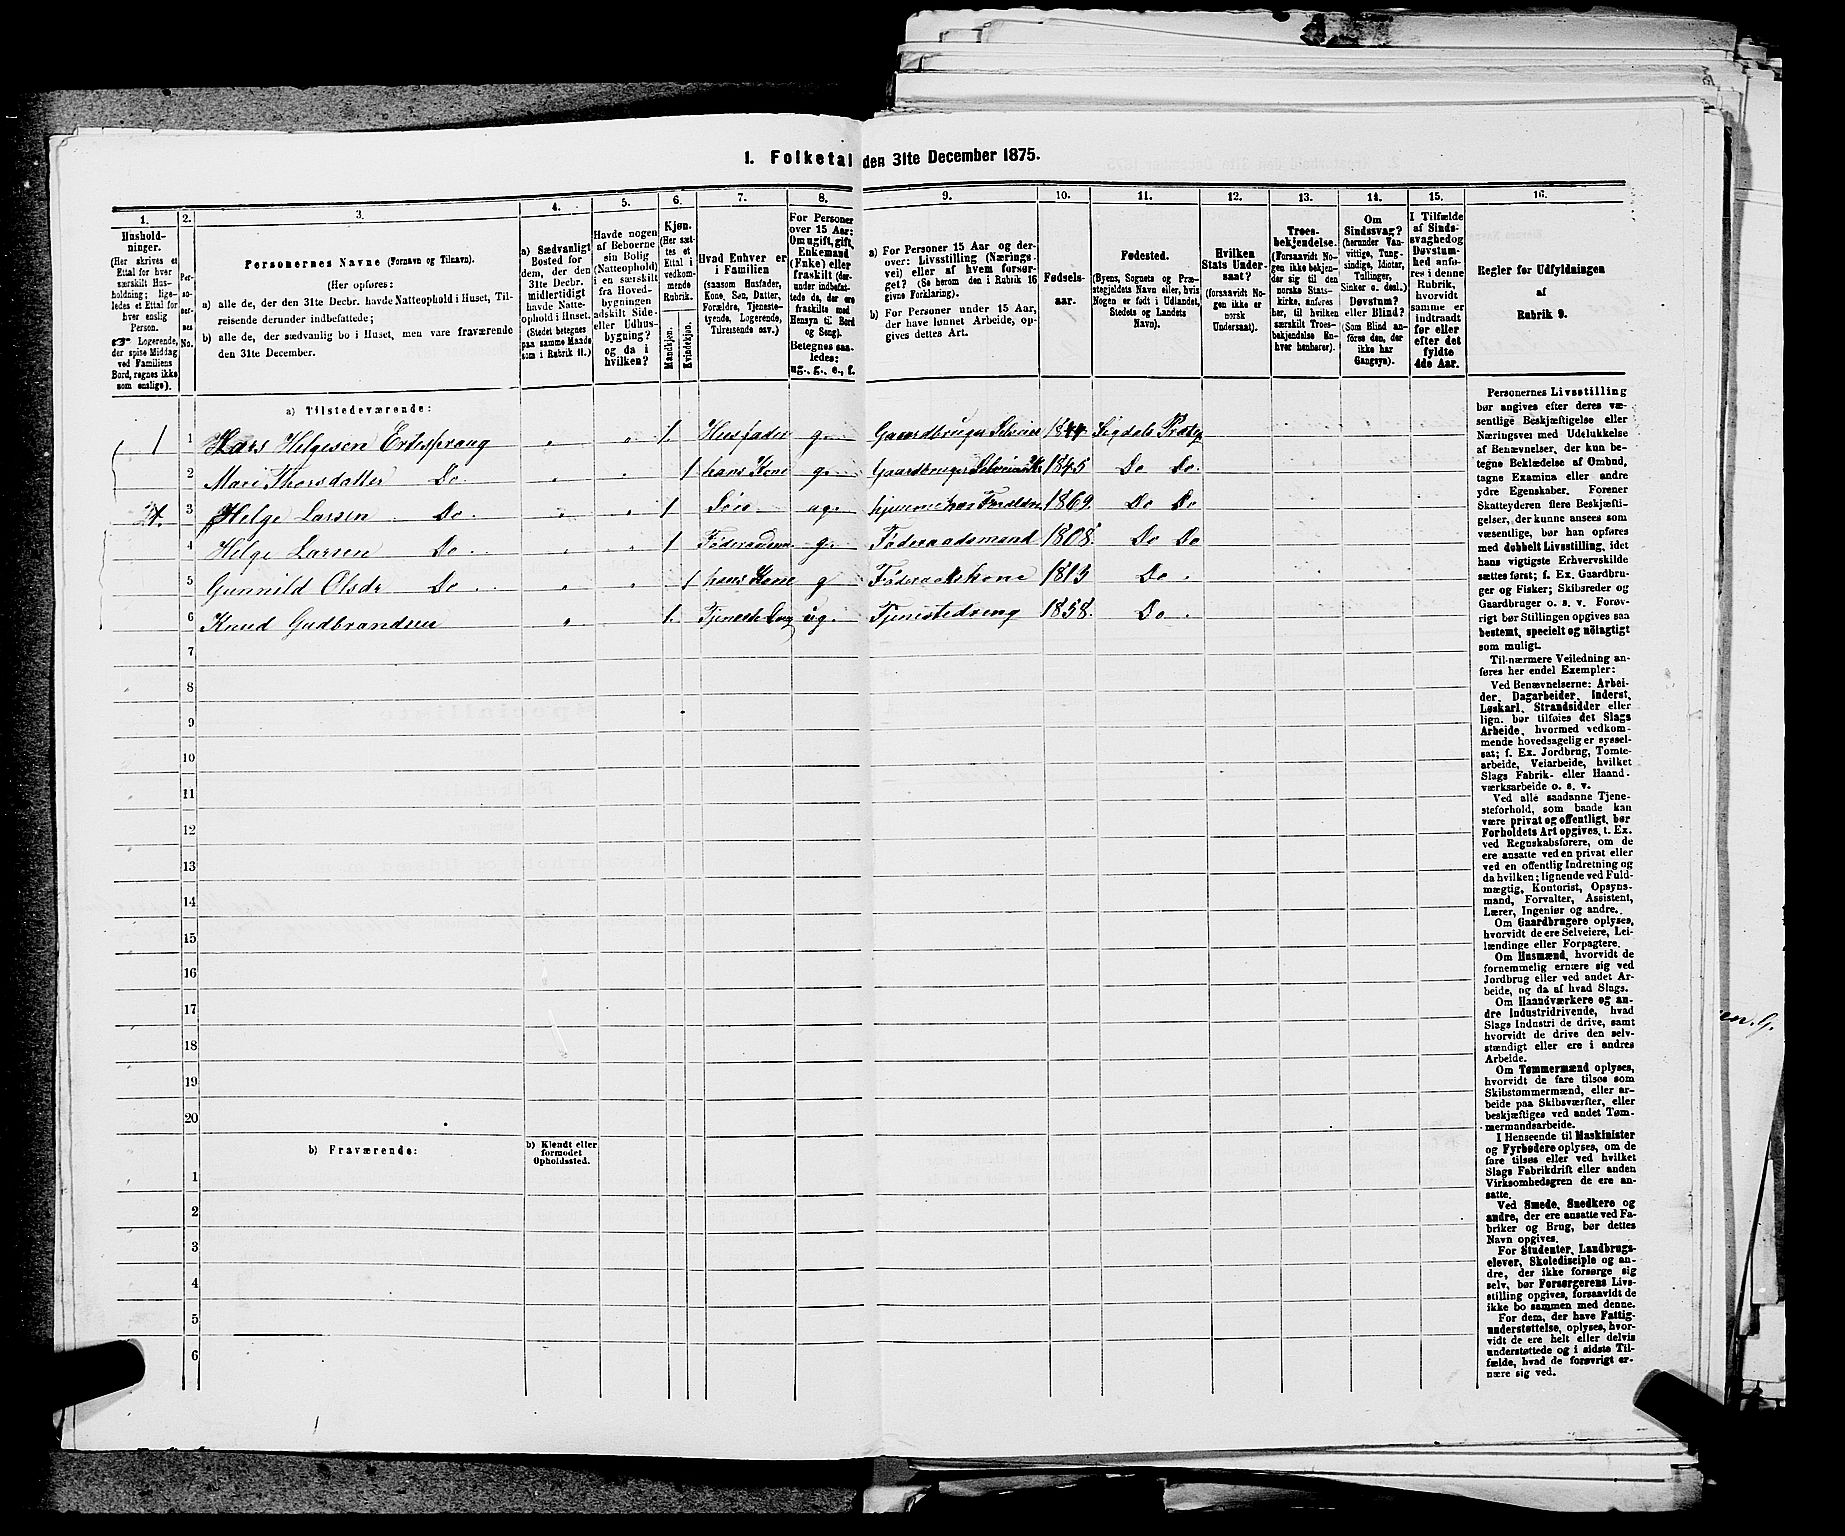 1. Folketal den 31te December 1875.
1. 2. 3. 4. 5. 6. 7. 8. 9. 10. 11. 12. 13. 14. 15. 16.
Hushold-
ninger.
(Her skrives et
Ettal for hver
særskilt Hus-
holdning; lige-
ledes et Ettal for
hver enslig
Person.
☞ Logerende,
der spise Middag
ved Familiens
Bord, regnes ikke
som enslige).
Per-
so-
ner-
nes
No.
Personernes Navne (Fornavn og Tilnavn).
(Her opføres:
a) alle de, der den 31te Decbr. havde Natteophold i Huset, Til-
reisende derunder indbefattede;
b) alle de, der sædvanlig bo i Huset, men vare fraværende
den 31te December.
a) Sædvanligt
Bosted for
dem, der den
31te Decbr.
midlertidigt
havde Natte-
ophold i Huset.
(Stedet betegnes
paa samme Maade
som i Rubrik 11.)
Havde nogen
af Beboerne
sin Bolig
(Natteophold)
i en særskilt
fra Hoved-
bygningen
adskilt Side-
eller Udhus-
bygning?
og da i
hvilken?
Kjøn.
(Her sæt-
tes et
Ettal i
vedkom-
mende
Rubrik.
Mandkjøn.
Kvindekjøn.
Hvad Enhver er
i Familien
(saasom Husfader,
Kone, Søn, Datter,
Forældre, Tjeneste-
tyende, Logerende,
Tilreisende osv.)
For Personer
over 15 Aar:
Om ugift, gift,
Enkemand
(Enke) eller
fraskilt (der-
under indbefat-
tede de, der ere
fraskilte med
Hensyn til Bord
og Seng).
Betegnes saa-
ledes:
ug., g., e., f.
a) For Personer 15 Aar og der-
over: Livsstilling (Nærings-
vei) eller af hvem forsør-
get? (Se herom den i Rubrik 16
givne Forklaring).
b) For Personer under 15 Aar,
der have lønnet Arbeide, op-
gives dettes Art.
Fødsels-
aar.
Fødested.
(Byens, Sognets og Præ-
stegjeldets Navn eller, hvis
Nogen er født i Udlandet,
Stedets og Landets
Navn).
Hvilken
Stats Under-
saat?
(forsaavidt No-
gen ikke er
norsk
Undersaat).
Troes-
bekjendelse.
(Forsaavidt No-
gen ikke bekjen-
der sig til den
norske Stats-
kirke, anføres
her, til hvilken
særskilt Troes-
bekjendelse En-
hver henhører).
Om
Sindssvag?
(herunder Van-
vittige, Tung-
sindige, Idioter,
Tullinger,
Sinker o. desl.)
Døvstum?
eller Blind?
(Som Blind an-
føres den, der
ikke har
Gangsyn).
I Tilfælde
af Sinds-
svaghed og
Døvstum-
hed anfø-
res i denne
Rubrik,
hvorvidt
samme er
indtraadt
før eller
efter det
fyldte
4de Aar.
Regler for Udfyldningen
af
Rubrik 9.
a) Tilstedeværende:
1 1 Helgesen Ertesprang 1. Husfader g. Gaardbruger Selveier 1844 Sigdals Præstg
2 Mari Thorsdatter Do. 1 hans Kone g. 1845 Do Do
3 Helge Larsen Do. 1 Søn ug. hjemme hos Forældre 1869 Do Do
4 Helge Larsen Do 1 g. Føderaadsmand 1808 Do Do
5 Gunnild Olsdr Do 1 hans Kone g Føderaadskone 1813 Do
6 Knud Gudbrandsen 1. ug. Tjenestedreng 1858 Do
7
8
9
10
11
12
13
14
15
16
17
18
19
20
b) Fraværende:
b) Kjendt eller
formodet
Opholdssted.
1
2
3
4
5
6
Personernes Livsstilling
bør angives efter deres væ-
sentlige Beskjæftigelse eller
Næringsvei med Udelukkelse
af Benævnelser, der kun be-
tegne Beklædelse af Ombud,
tagne Examina eller andre
ydre Egenskaber. Forener
Skatteyderen flere Beskjæfti-
gelser, der kunne ansees som
væsentlige, bør han opføres
med dobbelt Livsstilling, idet
hans vigtigste Erhvervskilde
sættes først; f. Ex. Gaardbru-
ger og Fisker; Skibsreder og
Gaardbruger o. s. v. Forøv-
rigt bør Stillingen opgives saa
bestemt, specielt og nöiagtigt
som muligt.
Til nærmere Veiledning an-
føres her endel Exempler:
Ved Benævnelserne: Arbei-
der, Dagarbeider, Inderst,
Løskarl, Strandsidder eller
lign. bør tilføies det Slags
Arbeide, hvormed vedkom-
mende hovedsagelig er syssel-
sat; f. Ex. Jordbrug, Tomte-
arbeide, Veiarbeide, hvilket
Slags Fabrik- eller Haand-
værksarbeide o. s. v.
Ved alle saadanne Tjene-
steforhold, som baade kan
være privat og offentligt, bør
Forholdets Art opgives, t. Ex.
ved Regnskabsførere, om de
ere ansatte ved en privat eller
ved en offentlig Indretning og
da hvilken; lignende ved Fuld-
mægtig, Kontorist, Opsyns-
mand, Forvalter, Assistent,
Lærer, Ingeniør og andre.
Om Gaardbrugere oplyses,
hvorvidt de ere Selveiere, Lei-
lændinge eller Forpagtere.
Om Husmænd, hvorvidt de
fornemmelig ernære sig ved
Jordbrug eller ved andet Ar-
beide, og da af hvad Slags.
Om Haandværkere og an-
dre Industridrivende, hvad
Slags Industri de drive, samt
hvorvidt de drive den selv-
stændigt eller ere i andres
Arbeide.
Om Tømmermænd oplyses,
hvorvidt de fare tilsøs som
Skibstømmermænd, eller ar-
beide paa Skibsværfter, eller
beskjæftiges ved andet Tøm-
mermandsarbeide.
I Henseende til Maskinister
og Fyrbødere oplyses, om de
fare tilsøs eller ved hvilket
Slags Fabrikdrift eller anden
Virksomhedsgren de ere an-
satte.
Ved Smede, Snedkere og
andre, der ere ansatte ved Fa-
briker og Brug, bør dettes
Navn opgives.
For Studenter, Landbrugs-
elever, Skoledisciple og an-
dre, der ikke forsørge sig
selv, bør Forsørgerens Livs-
stilling opgives, forsaavidt de
ikke bo sammen med denne.
For dem, der have Fattig-
understøttelse, oplyses, hvor-
vidt de ere helt eller delvis
understøttede og i sidste Til-
fælde, hvad de forøvrigt er-
nære sig ved.